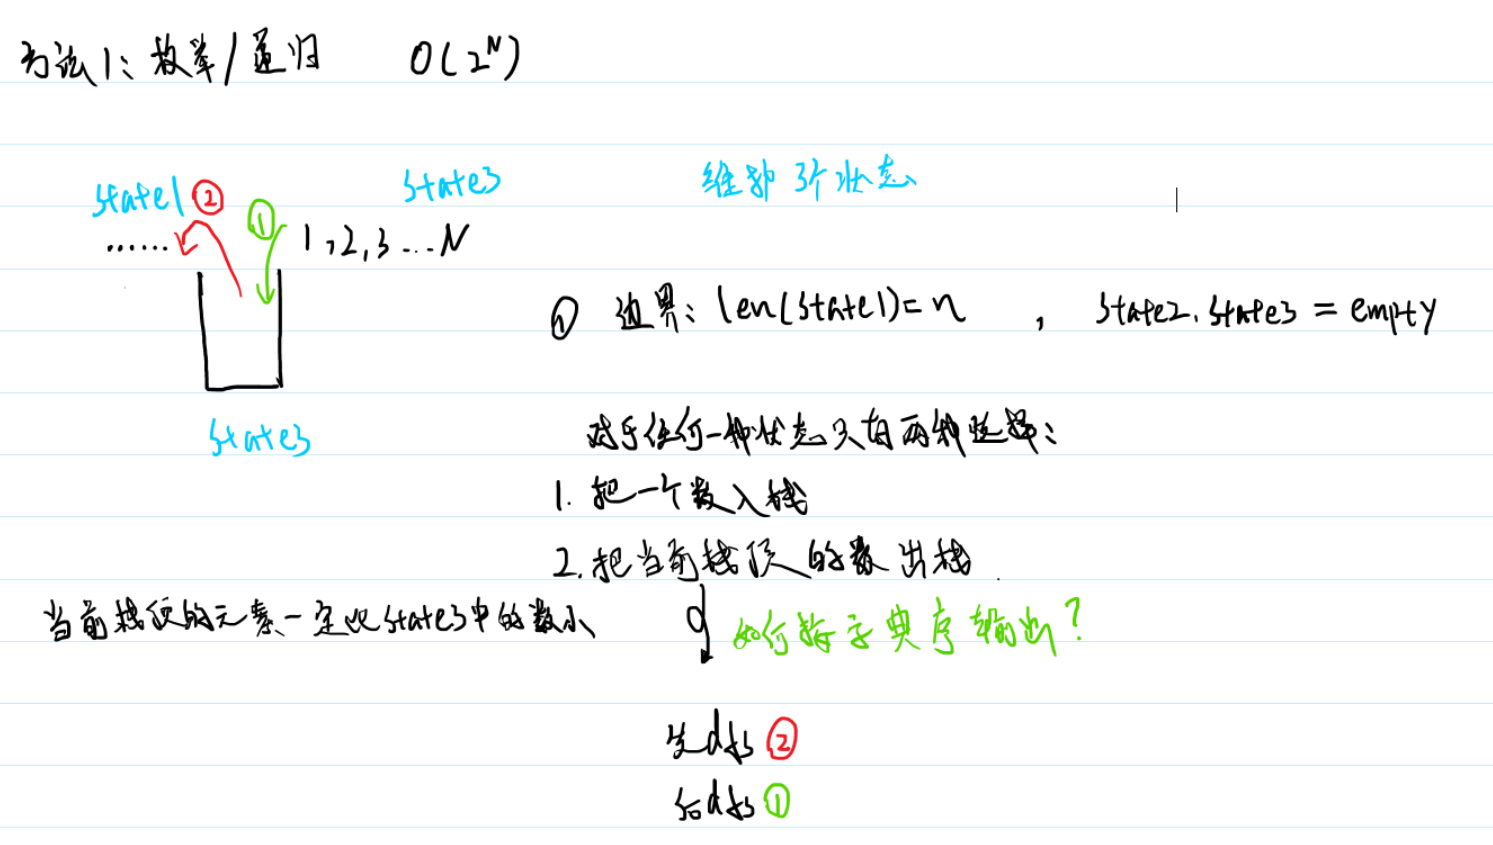 方法1：枚举/递归 O(2^N)
state1 ② state3 维护3个状态
...... ① 1,2,3...N
① 边界：len(state1)=n , state2.state3 = empty
对于任何一种状态只有两种选择：
state3
1. 把一个数入栈
2. 把当前栈顶的数出栈.
当前栈顶的元素一定比state3中的数小
如何按字典序输出？
先dfs ②
后dfs ①